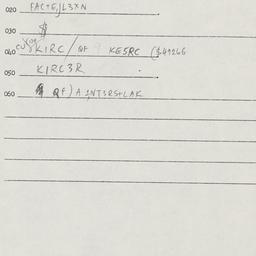 020 FACTEJL3XN
030 $
040 KIRC/QF KE5RC ($49266
050 KIRC3R
060 QF) A INT3RS+LAK